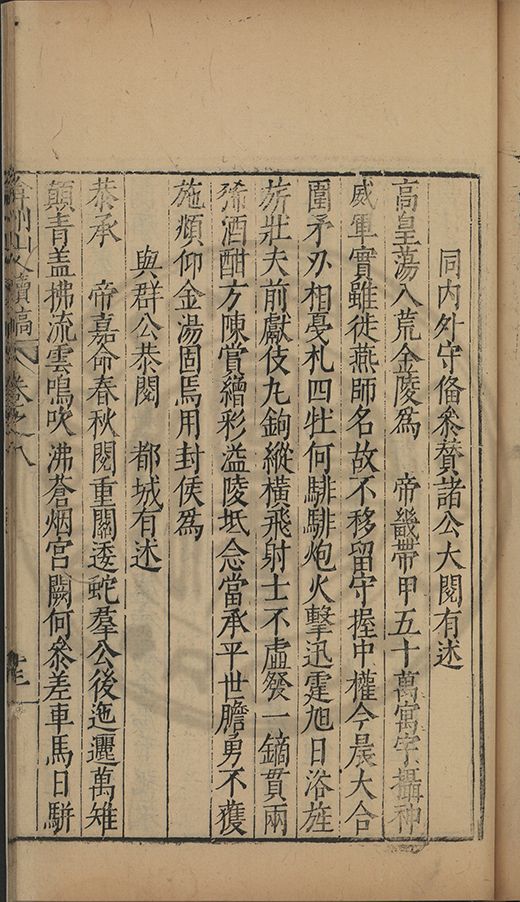 同内外守俻叅贊諸公大閱有述
高皇蕩八荒金陵爲　帝畿帶甲五十萬寓宇攝神
威軍實雖徙燕師名故不移留守握中權今晨大合
圍矛刃相戞札四牡何騑騑炮火擊迅霆旭日浴旌
旂壯夫前獻伎九鉤縱橫飛射士不虛發一鏑貫兩
狶酒酣方陳賞繒彩溢陵坻念當承平世膽勇不獲
施頫仰金湯固焉用封侯爲
與群公恭閱　都城有述
恭承　帝嘉命春秋閱重關逶蛇羣公後迤邐萬雉
顛青盖拂流雲鳴吹沸蒼烟宫闕何叅差車馬日駢
弇州山人續稿　卷之八　十三